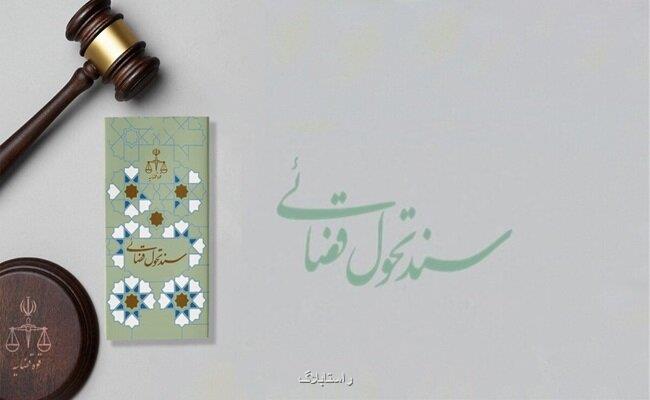 قوه قضاییه
سند تحول قضائی
سند تحول قضائی
قوه قضاییه
راستابلاگ